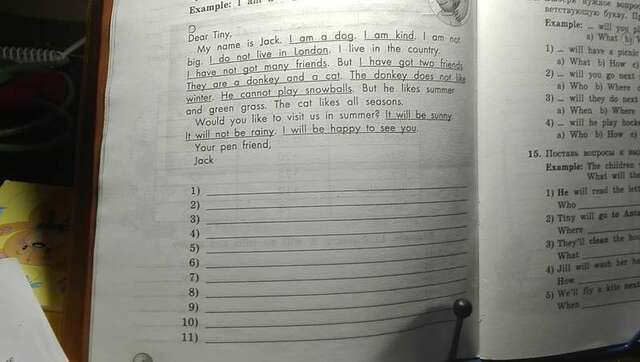 Example: I am
D
Dear Tiny.
My name is Jack. I am a dog. I am kind. I am not
big. I do not live in London. I live in the country.
I have not got many friends. But I have got two friends.
They are a donkey and a cat. The donkey does not like
winter. He cannot play snowballs. But he likes summer
and green grass. The cat likes all seasons.
Would you like to visit us in summer? It will be sunny.
It will not be rainy. I will be happy to see you.
Your pen friend,
Jack
1)
2)
3)
4)
5)
6)
7)
8)
9)
10)
11)
нужное
ветствующую букву.
Example: ... will you
a) What b)
1) ... will have a picnic
a) What b) How c)
2) ... will you go next
a) Who b) Where
3) ... will they do next
a) When b) Where
4) ... will he play
a) Who b) How c)
15. Поставь вопросы к
Example: The children
What will the
1) He will read the
Who
2) Tiny will go to
Where
3) They'll clean the
What
4) Jill will wash her
How
5) We'll fly a kite next
When